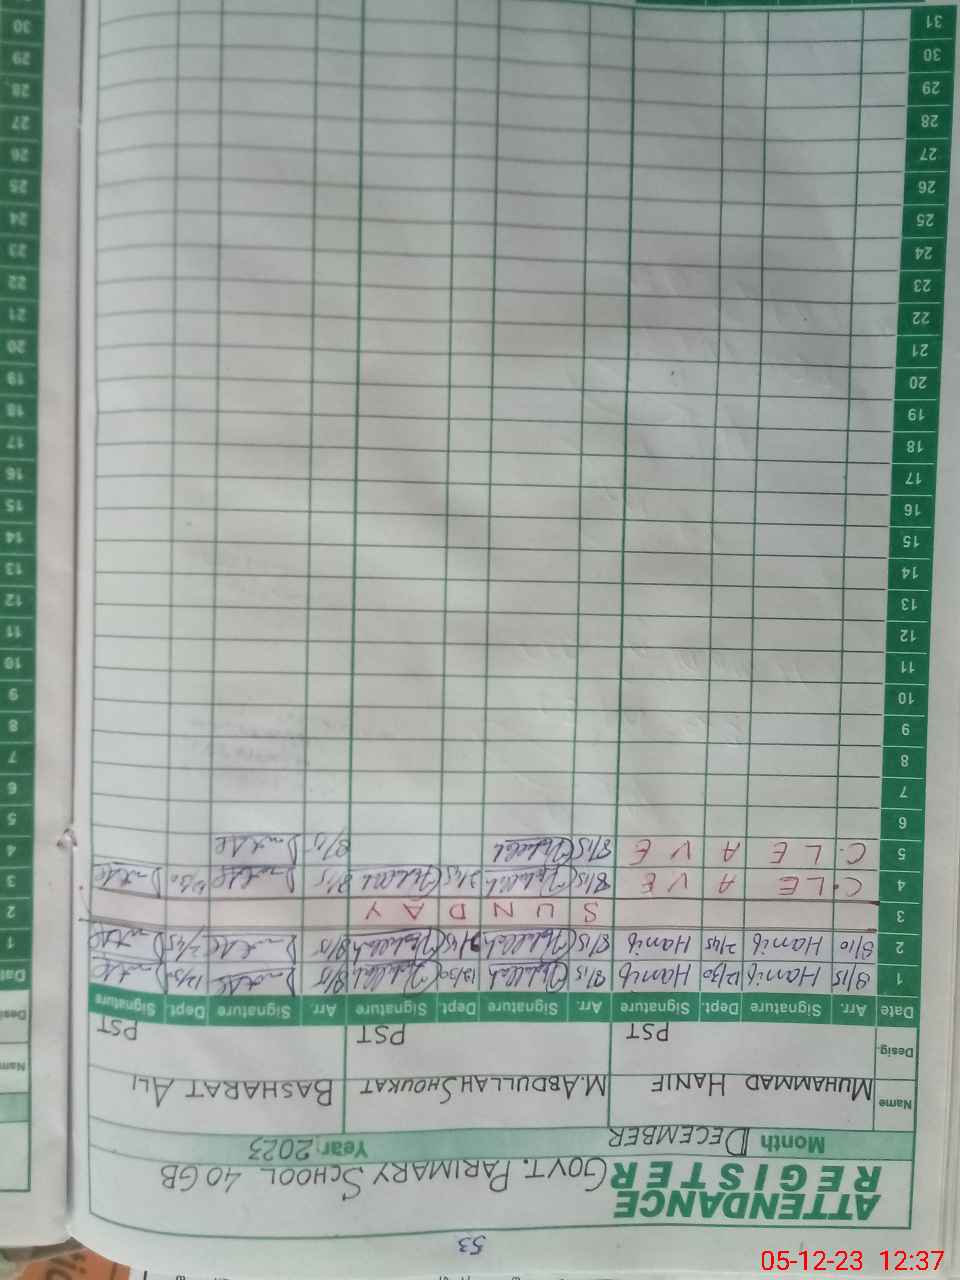 53
ATTENDANCE REGISTER GOVT. PARIMARY SCHOOL 40 GB
Month DECEMBER Year 2023
Name MUHAMMAD HANIF M. ABDULLAH SHOUKAT BASHARAT ALI
Desig. PST PST PST
Date Arr. Signature Dept. Signature Arr. Signature Dept. Signature Arr. Signature Dept. Signature
1 8/15 Hanif 12/30 Hanif 8/15 Abdullah 12/30 Abdullah 8/15 12/30
2 8/10 Hanif 2/45 Hanif 8/15 Abdullah 2/45 Abdullah 8/15 2/45
3 SUNDAY
4 C.LEAVE 8/15 Abdullah Abdullah 8/15
5 C.LEAVE 8/15 Abdullah 8/15
6
7
8
9
10
11
12
13
14
15
16
17
18
19
20
21
22
23
24
25
26
27
28
29
30
31
Name
Desi
Date
1
2
3
4
5
6
7
8
9
10
11
12
13
14
15
16
17
18
19
20
21
22
23
24
25
26
27
28
29
30
05-12-23 12:37